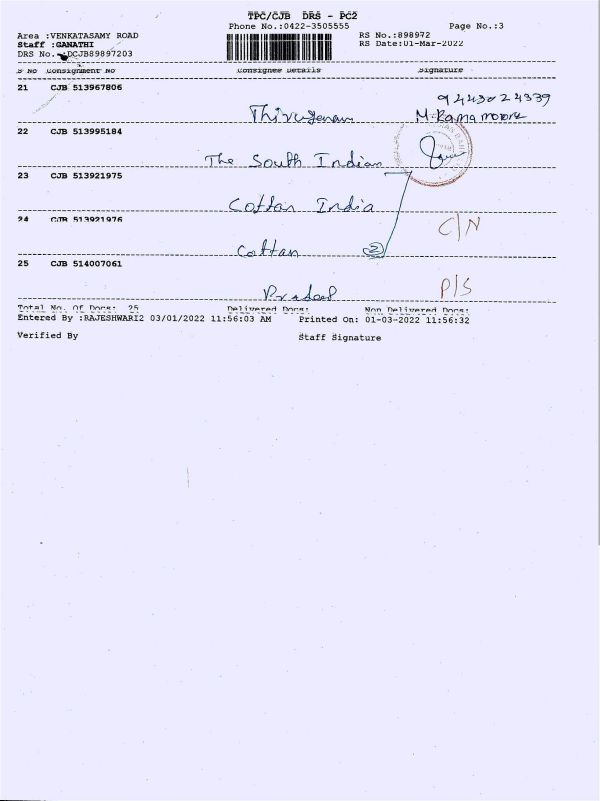 TPC/CJB DRS - PC2
Phone No.:0422-3505555 Page No.:3
Area :VENKATASAMY ROAD RS No.:898972
Staff :GANATHI RS Date:01-Mar-2022
DRS No. DCJB89897203
S No Consignment No Consignee Details Signature
21 CJB 513967806
9443024339
M. Ramamoorx
22 CJB 513995184
The South Indian
23 CJB 513921975
Cottan India
24 CJB 513921976
C/N
Cottan 2
25 CJB 514007061
Pradeep P/S
Total No. Of Docs: 25 Delivered Docs: Non Delivered Docs:
Entered By :RAJESHWARI2 03/01/2022 11:56:03 AM Printed On: 01-03-2022 11:56:32
Verified By Staff Signature